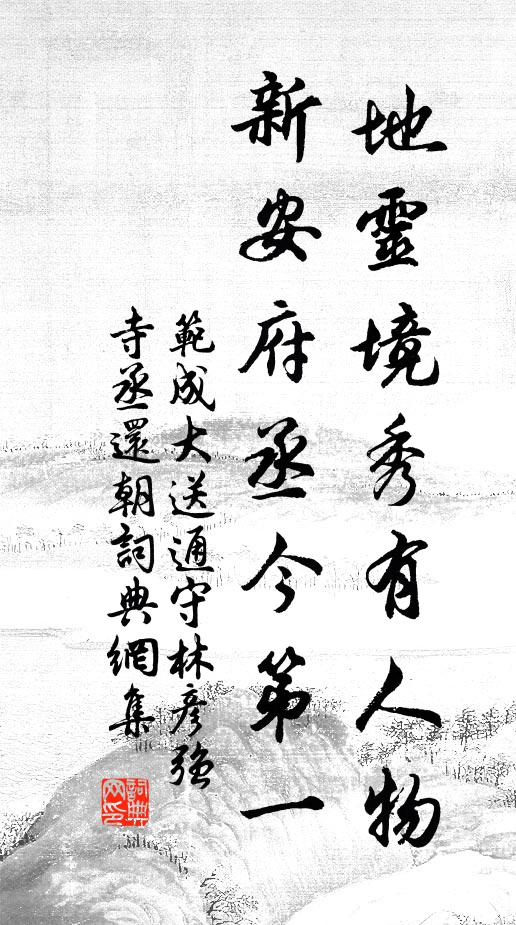 地靈境秀有人物
新安府丞今第一
範成大送通守林彥強
寺丞還朝詞典網集
詞典網印